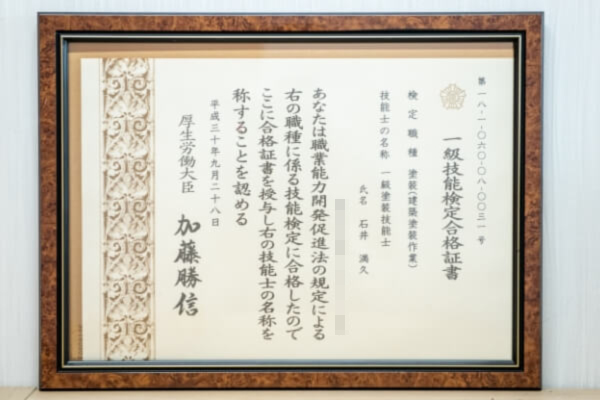 第一八-一-〇六〇-〇八-〇〇三一号
一級技能検定合格証書
検定職種 塗装(建築塗装作業)
技能士の名称 一級塗装技能士
氏名 石井 満久
あなたは職業能力開発促進法の規定による
右の職種に係る技能検定に合格したので
ここに合格証書を授与し右の技能士の名称を
称することを認める
平成三十年九月二十八日
厚生労働大臣 加藤勝信